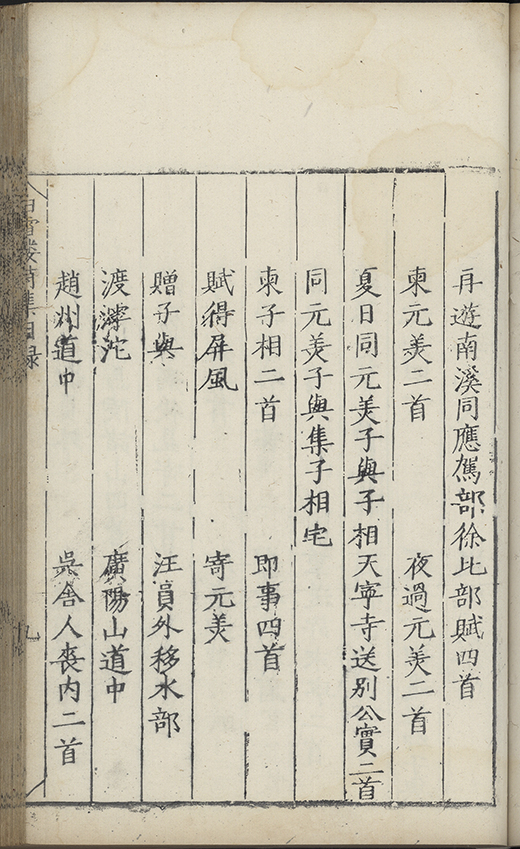 再遊南溪同應駕部徐比部賦四首
柬元美二首 夜過元美二首
夏日同元美子與子相天寧寺送別公實二首
同元美子與集子相宅
柬子相二首 即事四首
賦得屏風 寄元美
贈子與 汪員外移水部
渡滹沱 廣陽山道中
趙州道中 吳舍人喪内二首
白雪楼詩集目録
九